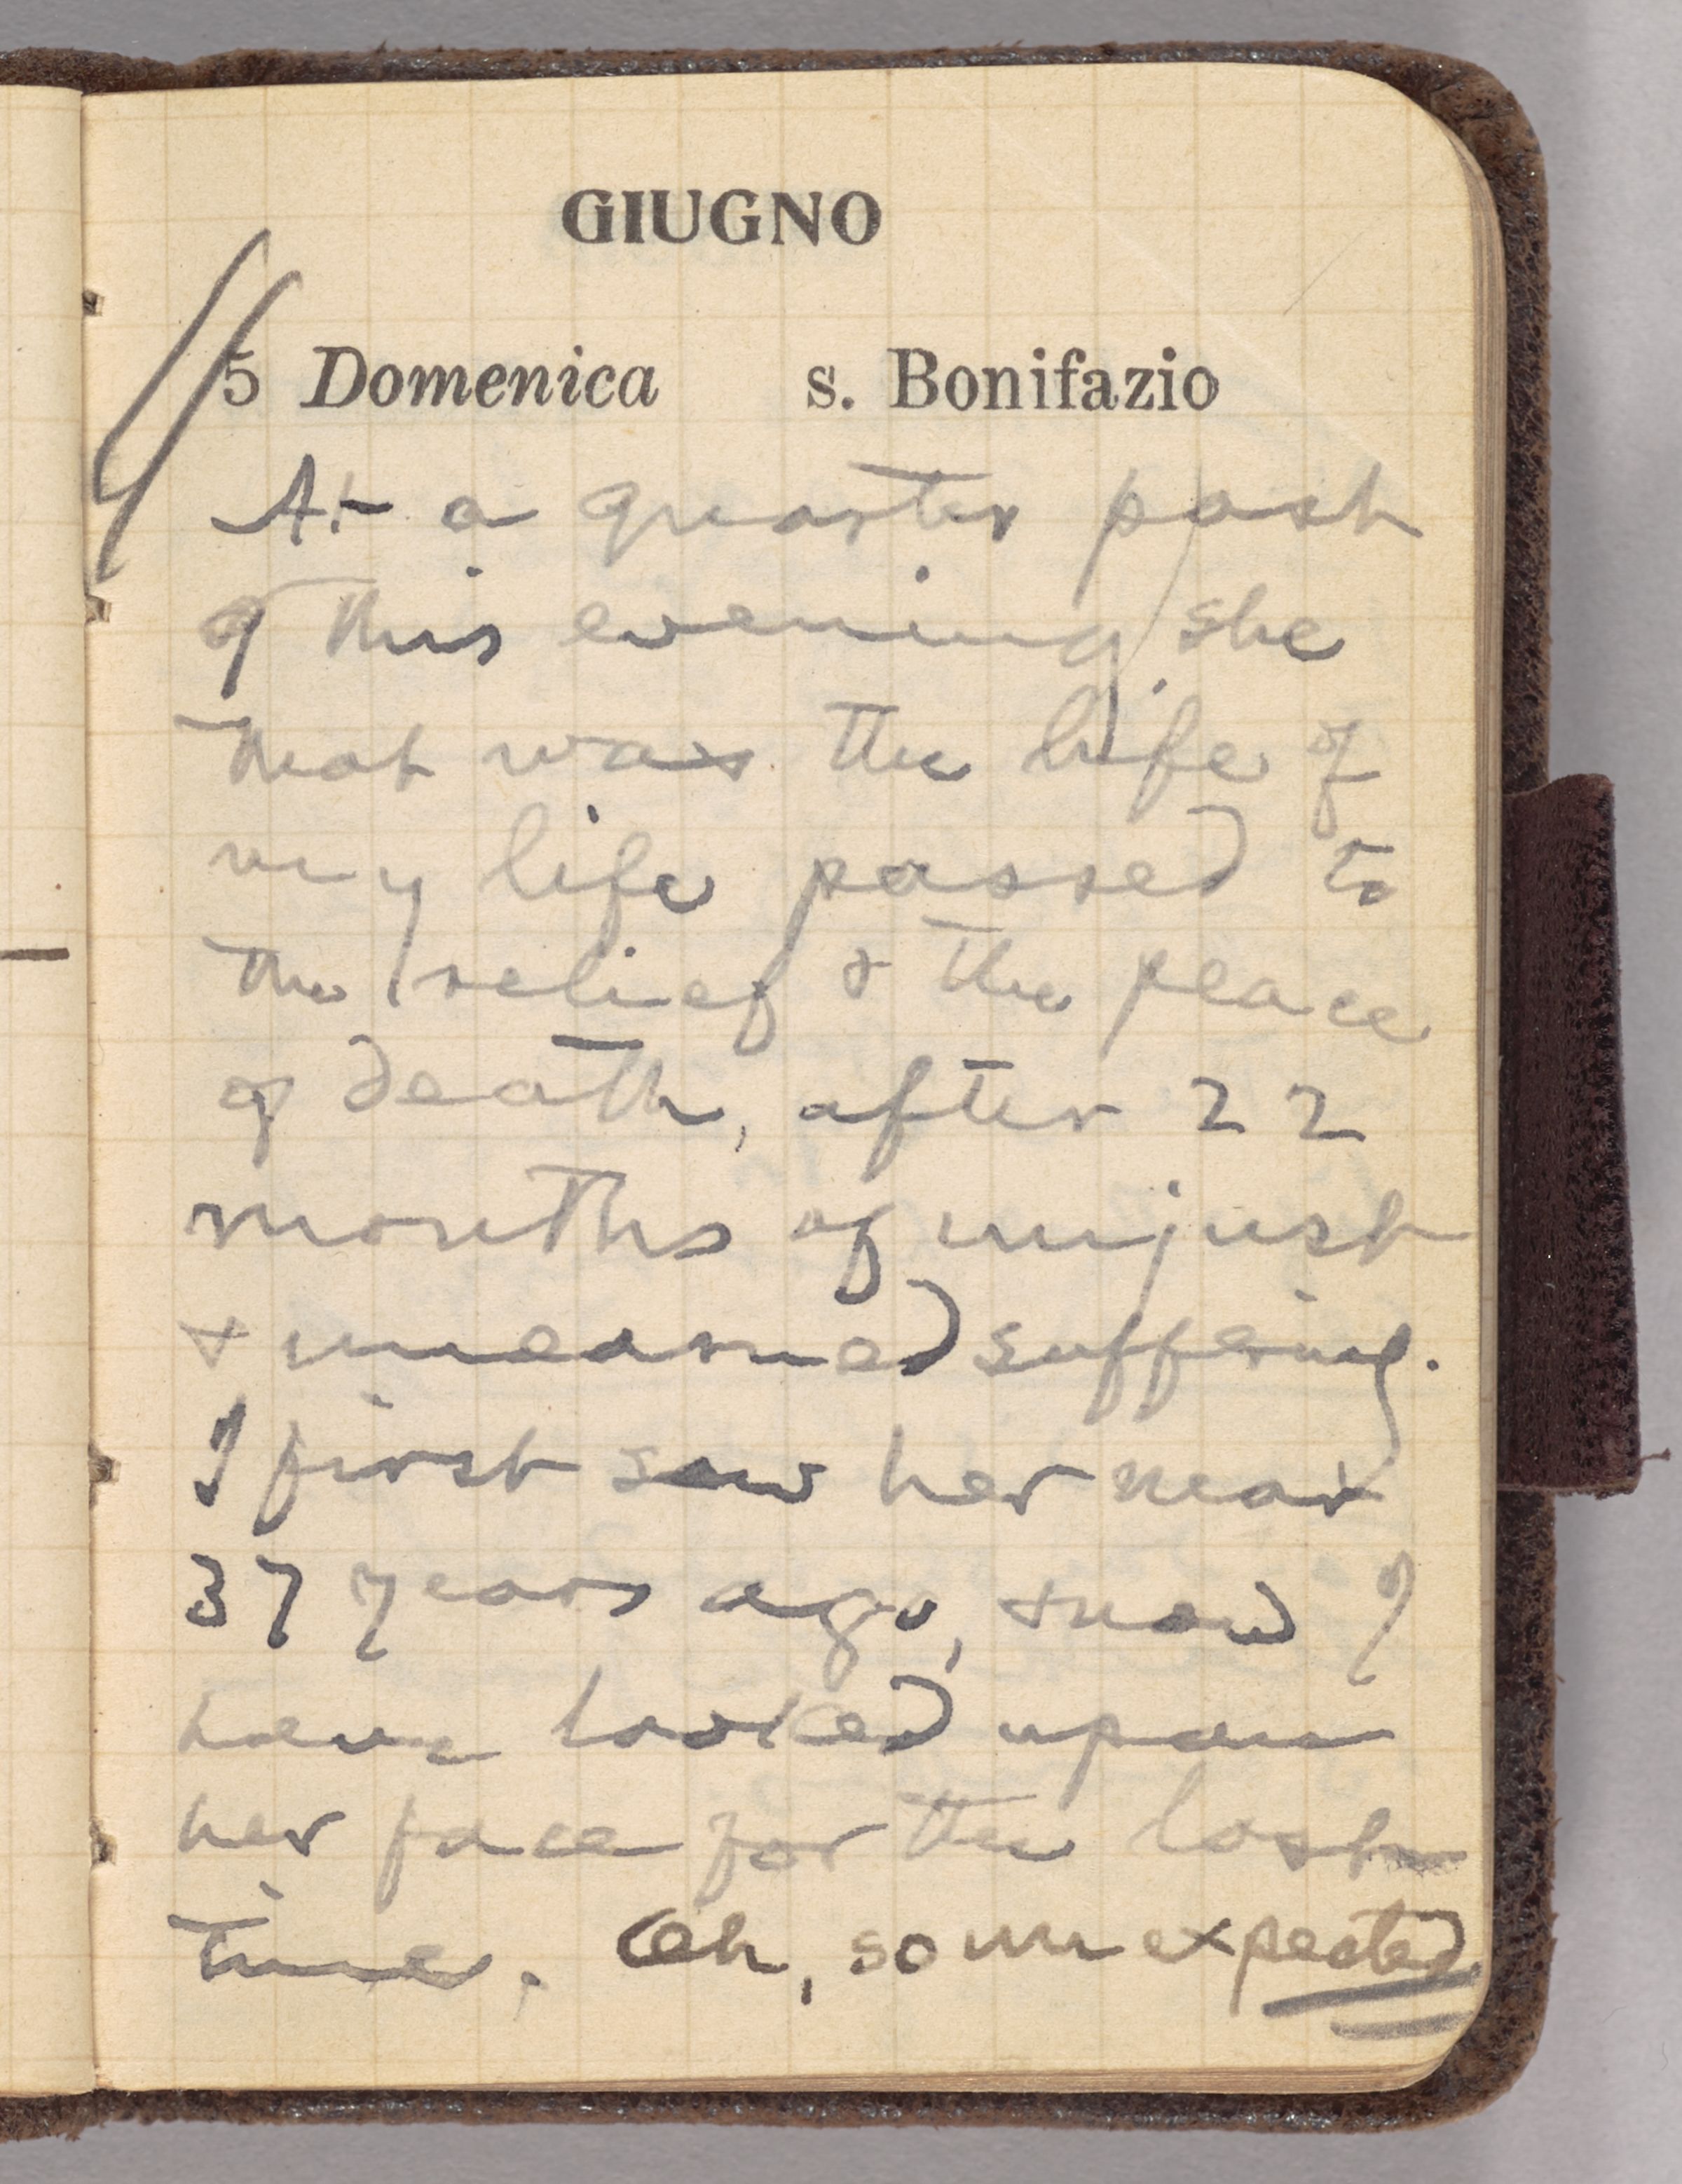 GIUGNO
5 Domenica s. Bonifazio
At a quarter past
9 this evening she
that was the life of
my life passed to
the relief & the peace
of death, after 22
months of unjust
& unearned suffering.
I first saw her near
37 years ago, & now I
have looked upon
her face for the last
time. Oh, so unexpected